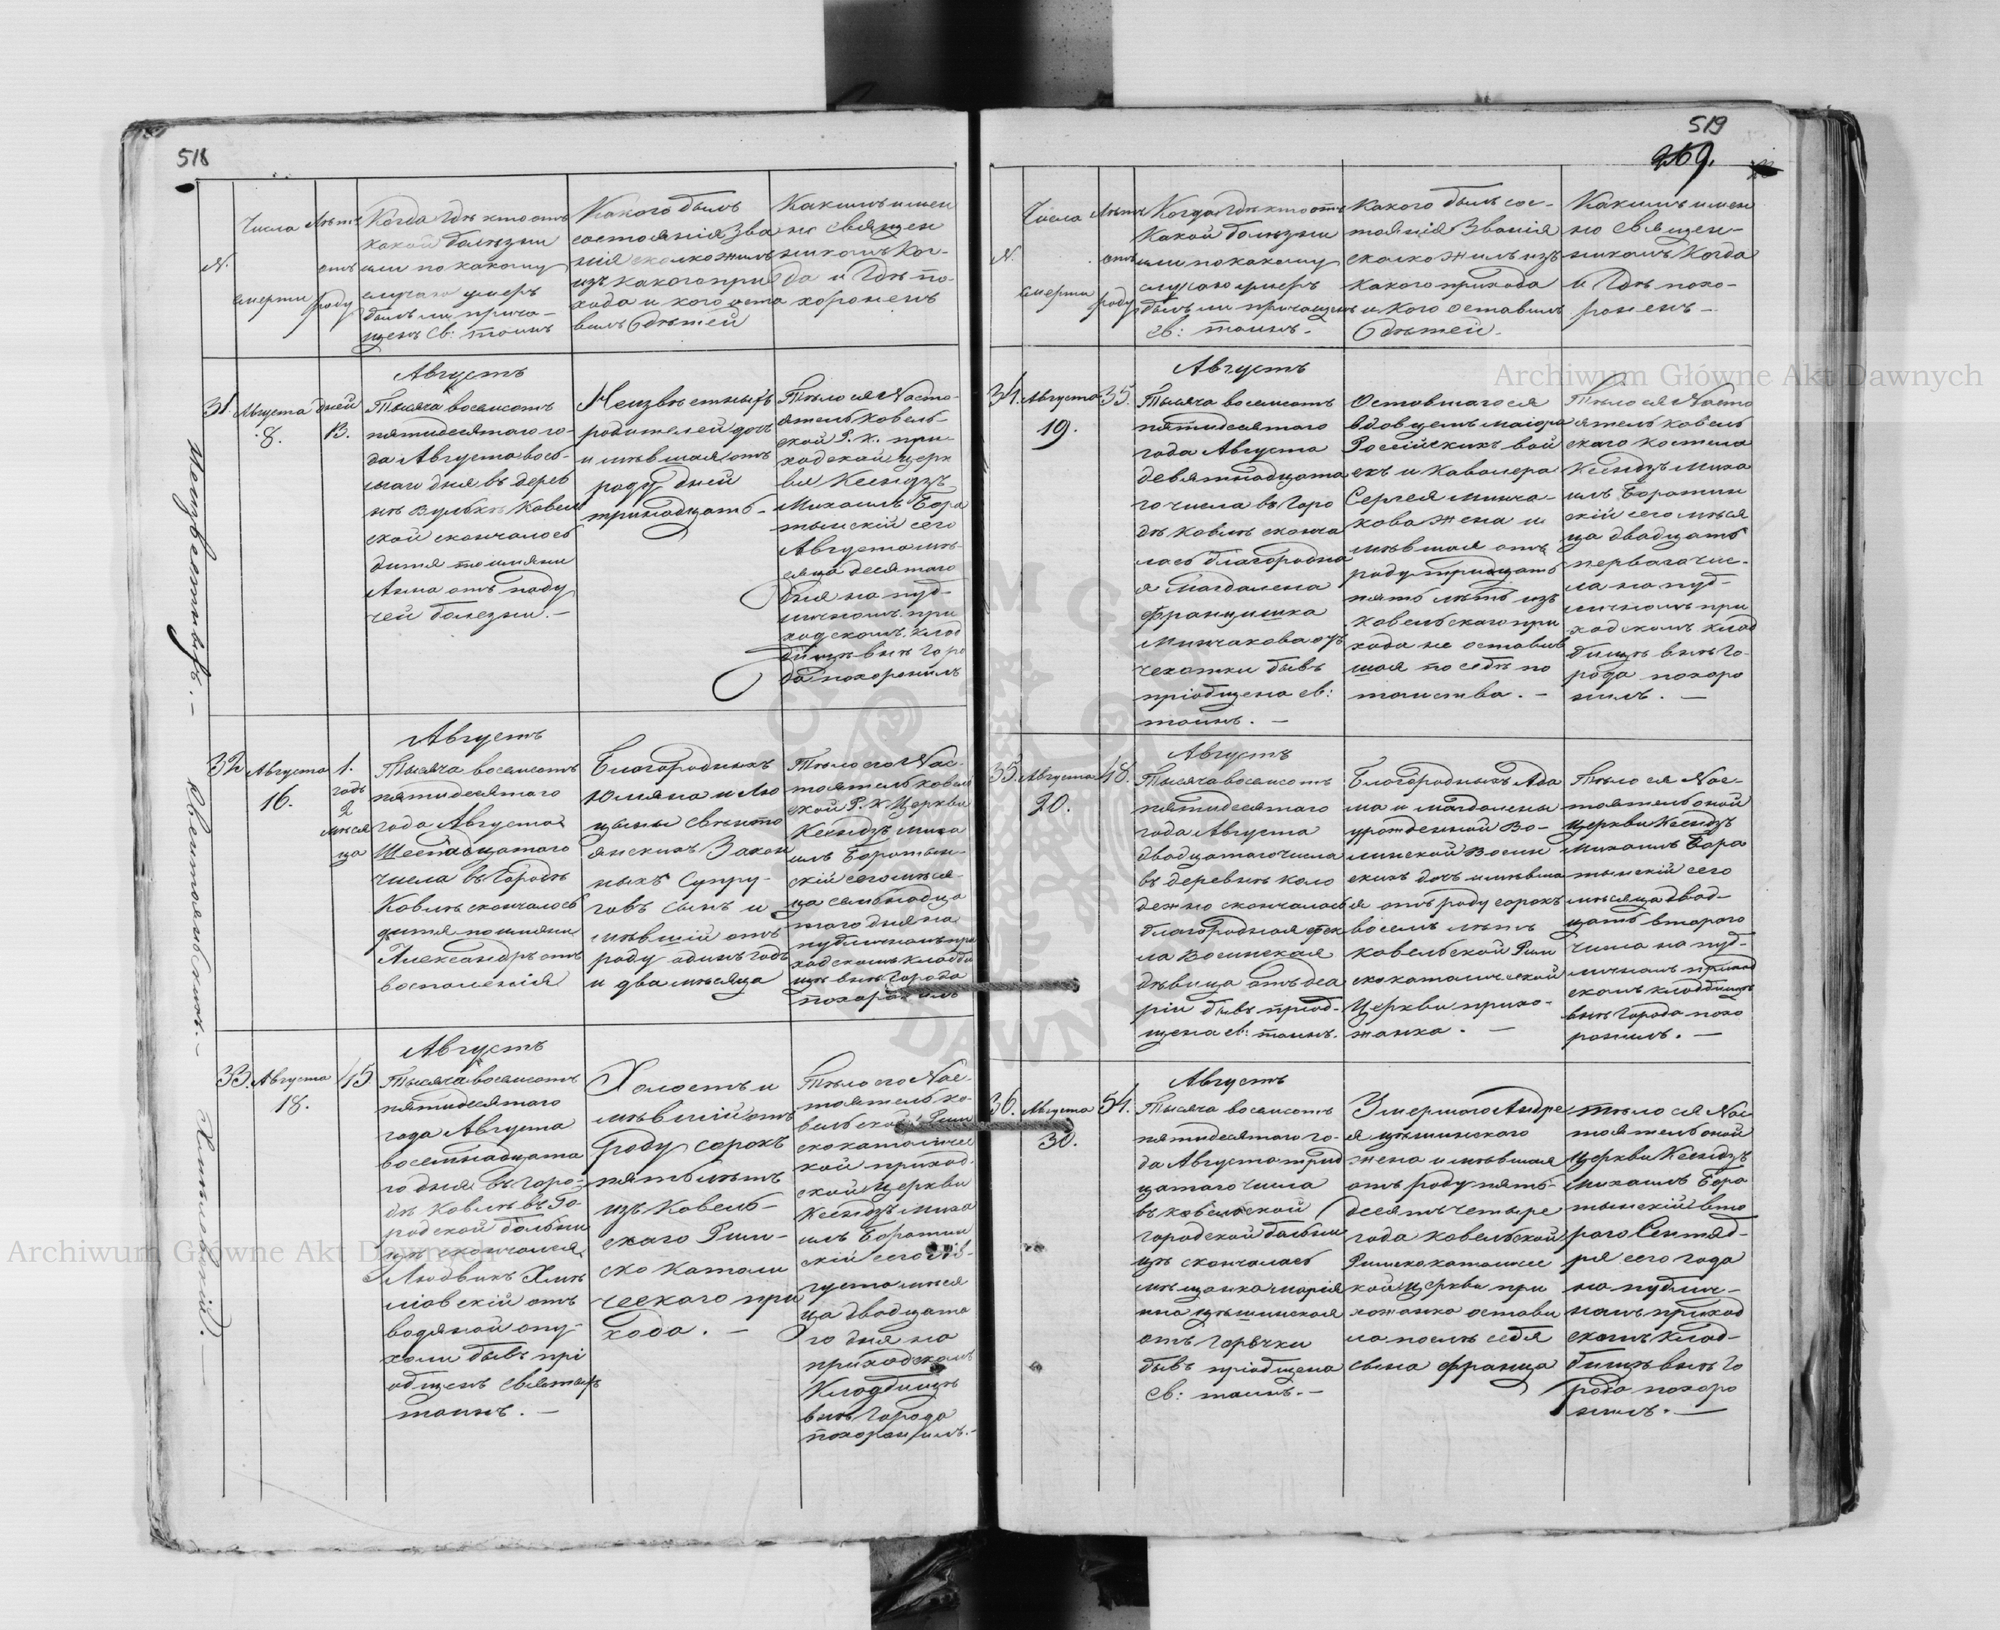 518
N.
Числа
смерти
Лѣтъ
отъ
роду
Когда Гдѣ кто отъ
какой болѣзни
или по какому
случаю умеръ
былъ ли прича-
щенъ Св: таинъ
Какого былъ
состоянія Зва
нія сколко жилъ
изъ какого при
хода и кого оста
вилъ дѣтей
Какимъ имен
но Священ
никомъ Ког-
да и Гдѣ по-
хороненъ
31
Августа
8.
дней
13.
Августъ
Тысяча восемсотъ
пятидесятого го-
да Августа вось-
маго дня въ дерев
нѣ Вулькѣ Ковель
ской скончалось
дитя по имяни
Анна отъ паду
чей болезни. —
Неизвѣстныхъ
родителей дочь
имѣвшая отъ
роду дней
тринадцать. -
Тѣло ея Насто-
ятель Ковель-
ской Р. К. при-
ходской церк
ви Ксендзъ
Михаилъ Бора
тынскій сего
Августа мѣ-
сяца десятаго
дня на пуб-
личномъ при
ходскомъ клад
бищѣ внѣ горо
да похоронилъ
Неизвѣстныхъ. —
32
Августа
16.
1.
годъ
2
мѣся
ца
Августъ
Тысяча восемсотъ
пятидесятого
года Августа
Шестнадцатого
числа въ Городѣ
Ковлѣ скончалось
дитя по имяни
Александръ отъ
воспаленія
Благородныхъ
Юліяна и Лю
цыны Свѣнто
янскихъ Закон
ныхъ Супру-
говъ сынъ и
мѣвшій отъ
роду одинъ годъ
и два мѣсяца
Тѣло его Нас-
тоятель Ковель
ской Р. К. Церкви
Ксендзъ Миха
илъ Боратын-
скій сего мѣся-
ца семнадца
таго дня на
публичномъ при
ходскомъ кладби
щѣ внѣ Города
похоронилъ
33.
Августа
18.
45
Августъ
Тысяча восемсотъ
пятидесятого
года Августа
восемнадцата
го дня въ горо-
дѣ Ковлѣ въ Го-
родской больни
цѣ скончался
Людвикъ Хмѣ
лѣовскій отъ
водяной опу-
холи бывъ прі
общенъ святыхъ
таинъ. —
Холостъ и
мѣвшій отъ
роду сорокъ
пять лѣтъ
изъ Ковель-
скаго Рим-
ско Католи
ческаго при
хода. —
Тѣло его Нас-
тоятель Ко-
вельской Рим
скокатоличес
кой приход-
ской Церкви
Ксендзъ Миха
илъ Боратын
скій сего Ав-
густа мѣся
ца двадцата
го дня на
приходскомъ
Кладбищѣ
внѣ Города
похоронилъ. -
519
269.
N.
Числа
смерти
Лѣтъ
отъ
роду
Когда Гдѣ кто отъ
Какой болѣзни
или по какому
случаю умеръ
былъ ли причащенъ
Св: таинъ. -
Какого былъ сос-
тоянія Званія
сколко жилъ изъ
Какого прихода
и Кого оставилъ
дѣтей. -
Какимъ имен
но Священ-
никомъ Когда
и Гдѣ похо-
роненъ —
34.
Августа
19.
35.
Августъ
Тысяча восемсотъ
пятидесятаго
года Августа
девятнадцата
го числа въ Горо
дѣ Ковлѣ сконча
лась благородна
я Магдалена
Францишка
Минчакова отъ
чехотки бывъ
пріобщена св:
таинъ. —
Оставшагося
вдовцемъ маіора
Россійскихъ вой
скъ и Кавалера
Сергея Минча-
кова жена и
мѣвшая отъ
роду тридцать
пять лѣтъ изъ
Ковельскаго при
хода не оставив
шая по себѣ по
томства. —
Тѣло ея Насто
ятель Ковель
скаго Костела
Ксендзъ Миха
илъ Боратын
скій сего мѣся
ца двадцать
перваго чис-
ла на пуб-
личномъ при
ходскомъ клад
бищѣ внѣ Го-
рода похоро
нилъ. —
35.
Августа
20.
48.
Августъ
Тысяча восемсотъ
пятидесятаго
года Августа
двадцатаго числа
въ деревнѣ Коло
дежно скончалась
благородная Фек
ла Восинская
дѣвица отъ
рiи бывъ пріоб-
щена св: таинъ.
Благородныхъ Ада
ма и Магдалены
урожденной Во-
линской Восин
скихъ дочь имѣвша
я отъ роду сорокъ
восемъ лѣтъ
Ковельской Рим
скокатолической
Церкви прихо-
жанка. —
Тѣло ея Нас-
тоятель оной
Церкви Ксендзъ
Михаилъ Бора
тынскій сего
мѣсяца двад-
цать втораго
числа на пуб-
личномъ приход
скомъ кладбищѣ
внѣ города похо
ронилъ. —
36.
Августа
30.
54.
Августъ
Тысяча восемсотъ
пятидесятого го-
да Августа трид
цатаго числа
въ Ковельской
городской больни
цѣ скончалась
мѣщанка Марія
отъ горячки
бывъ пріобщена
Св: таинъ. —
Умершаго Андре
жена имѣвшая
отъ роду пять-
десятъ четыре
года Ковельской
Римскокатоличес
кой Церкви при
хожанка остави
ла послѣ себя
сына Франца
Тѣло ея Нас
тоятель оной
Церкви Ксендзъ
Михаилъ Бора
тынскій вто
раго Сентяб-
ря сего года
на публич-
номъ приход
скомъ клад-
бищѣ внѣ Го
рода похоро
нилъ. —
Archiwum Główne Akt Dawnych
Archiwum Główne Akt Dawnych